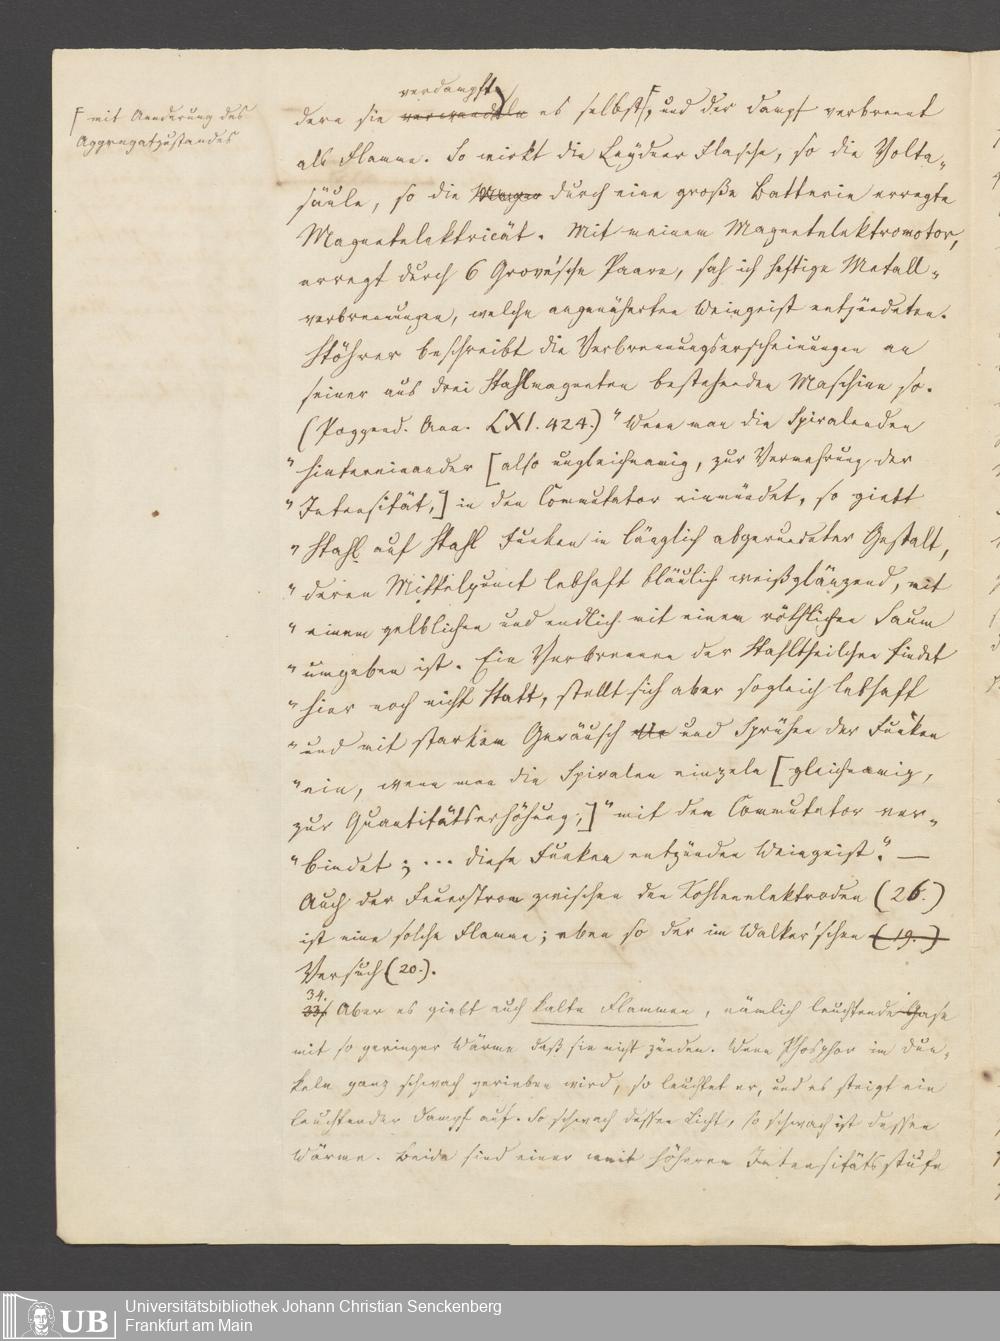 ⌈ mit Aenderung des
Aggregatzustandes
verdampft
dern sie verwandeln es selbst⌈, und der Dampf verbrennt
als Flamme. So wirkt die Leydner Flasche, so die Volta-
säule, so die Magne durch eine große Batterie erregte
Magnetelektricität. Mit meinem Magnetelektromotor,
erregt durch 6 Grove'sche Paare, sah ich heftige Metall-
verbrennungen, welche angenäherten Weingeist entzündeten.
Stöhrer beschreibt die Verbrennungserscheinungen an
seiner aus drei Stahlmagneten bestehenden Maschine so.
(Poggend. Ann. LXI. 424.) "Wenn man die Spiralenden
"hintereinander [also ungleichnamig, zur Vermehrung der
"Intensität,] in den Commutator einmündet, so giebt
"Stahl auf Stahl Funken in länglich abgerundeter Gestalt,
"deren Mittelpunct lebhaft bläulich weißglänzend, mit
"einem gelblichen und endlich mit einem röthlichen Saum
"umgeben ist. Ein Verbrennen der Stahltheilchen findet
"hier noch nicht Statt, stellt sich aber sogleich lebhaft
"und mit starkem Geräusch und Sprühen der Funken
"ein, wenn man die Spiralen einzeln [gleichnamig,
zur Quantitätserhöhung,] "mit dem Commutator ver-
"bindet; ... diese Funken entzünden Weingeist." —
Auch der Feuerstrom zwischen den Kohlenelektroden (26.)
ist eine solche Flamme; eben so der im Walker'schen (19.)
Versuch (20.).
34.
33. Aber es giebt auch kalte Flammen, nämlich leuchtende Gase
mit so geringer Wärme daß sie nicht zünden. Wenn Phosphor im Dun-
keln ganz schwach gerieben wird, so leuchtet er, und es steigt ein
leuchtender Dampf auf. So schwach dessen Licht, so schwach ist dessen
Wärme. Beide sind einer weit höheren Intensitätsstufe
UB Universitätsbibliothek Johann Christian Senckenberg
Frankfurt am Main